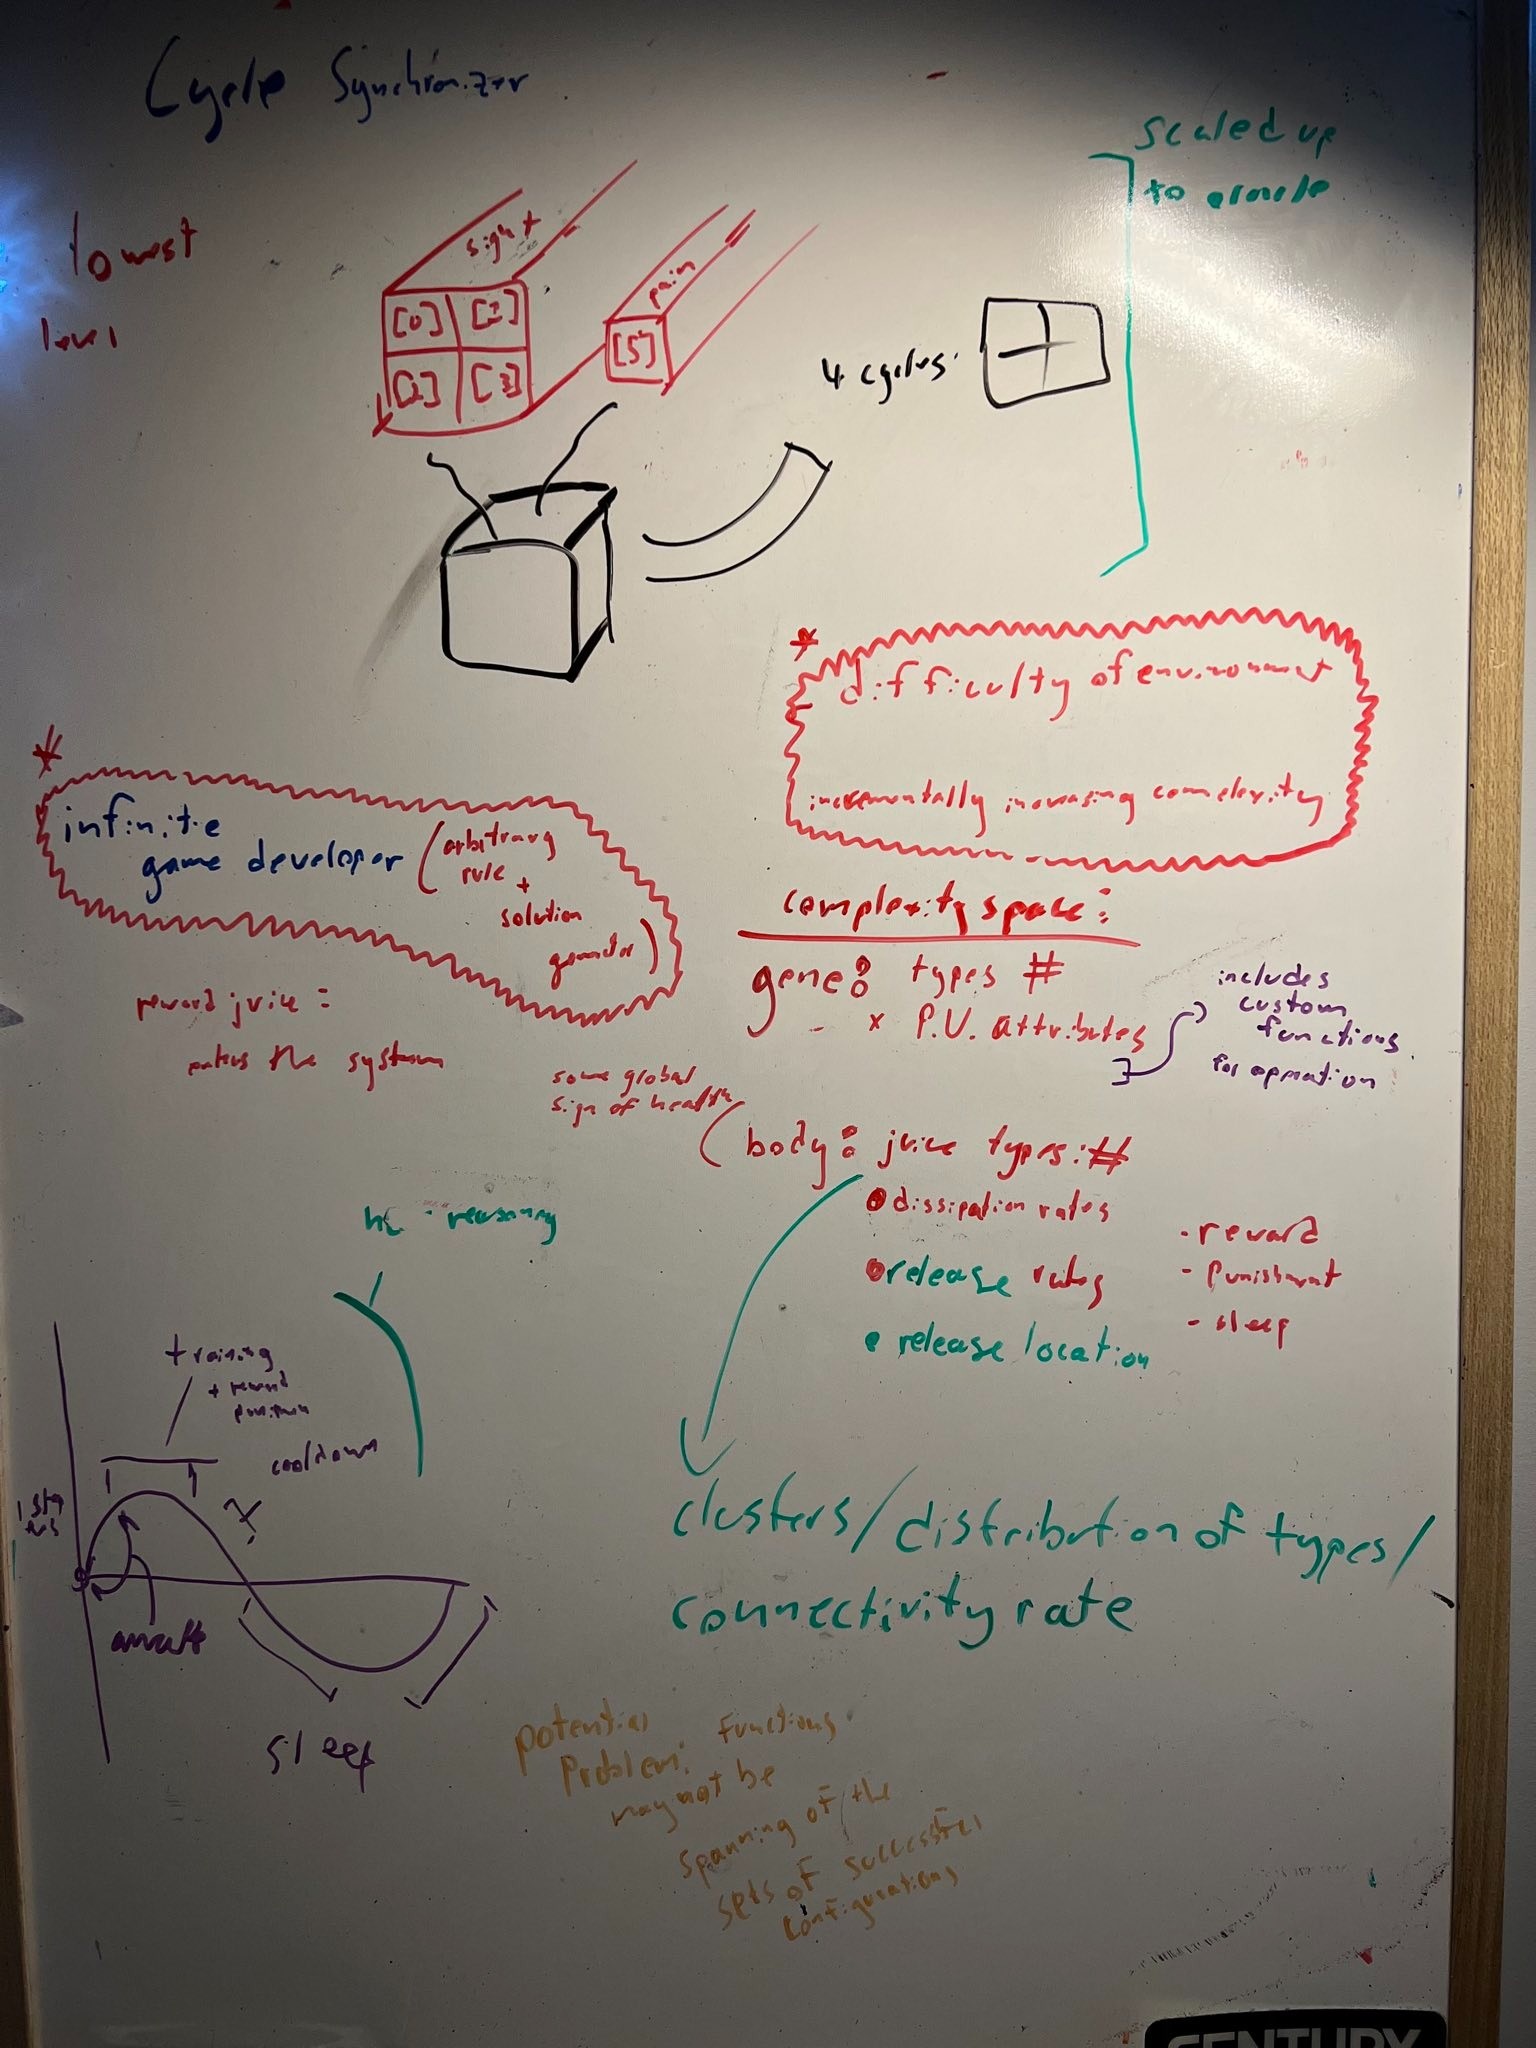 Cycle Synchronizer
scaled up
to
lowest
level
sight
pain
[0] [2]
[5]
[3]
4 cycles:
* difficulty of environment
incrementally increasing complexity
* infinite
game developer (arbitrary
rule
+
solution
)
complexity space:
gene: types #
x P.U. Attributes
includes
custom
functions
for operation
reward juice:
the system
some global
sign of health
(body: juice types: #
• dissipation rates
• release rates
• release location
- reward
- punishment
- sleep
reasoning
training
+ reward
cooldown
sleep
clusters/distribution of types/
connectivity rate
potential
problem: functions
may not be
spanning of the
sets of successful
configurations
CENTURY